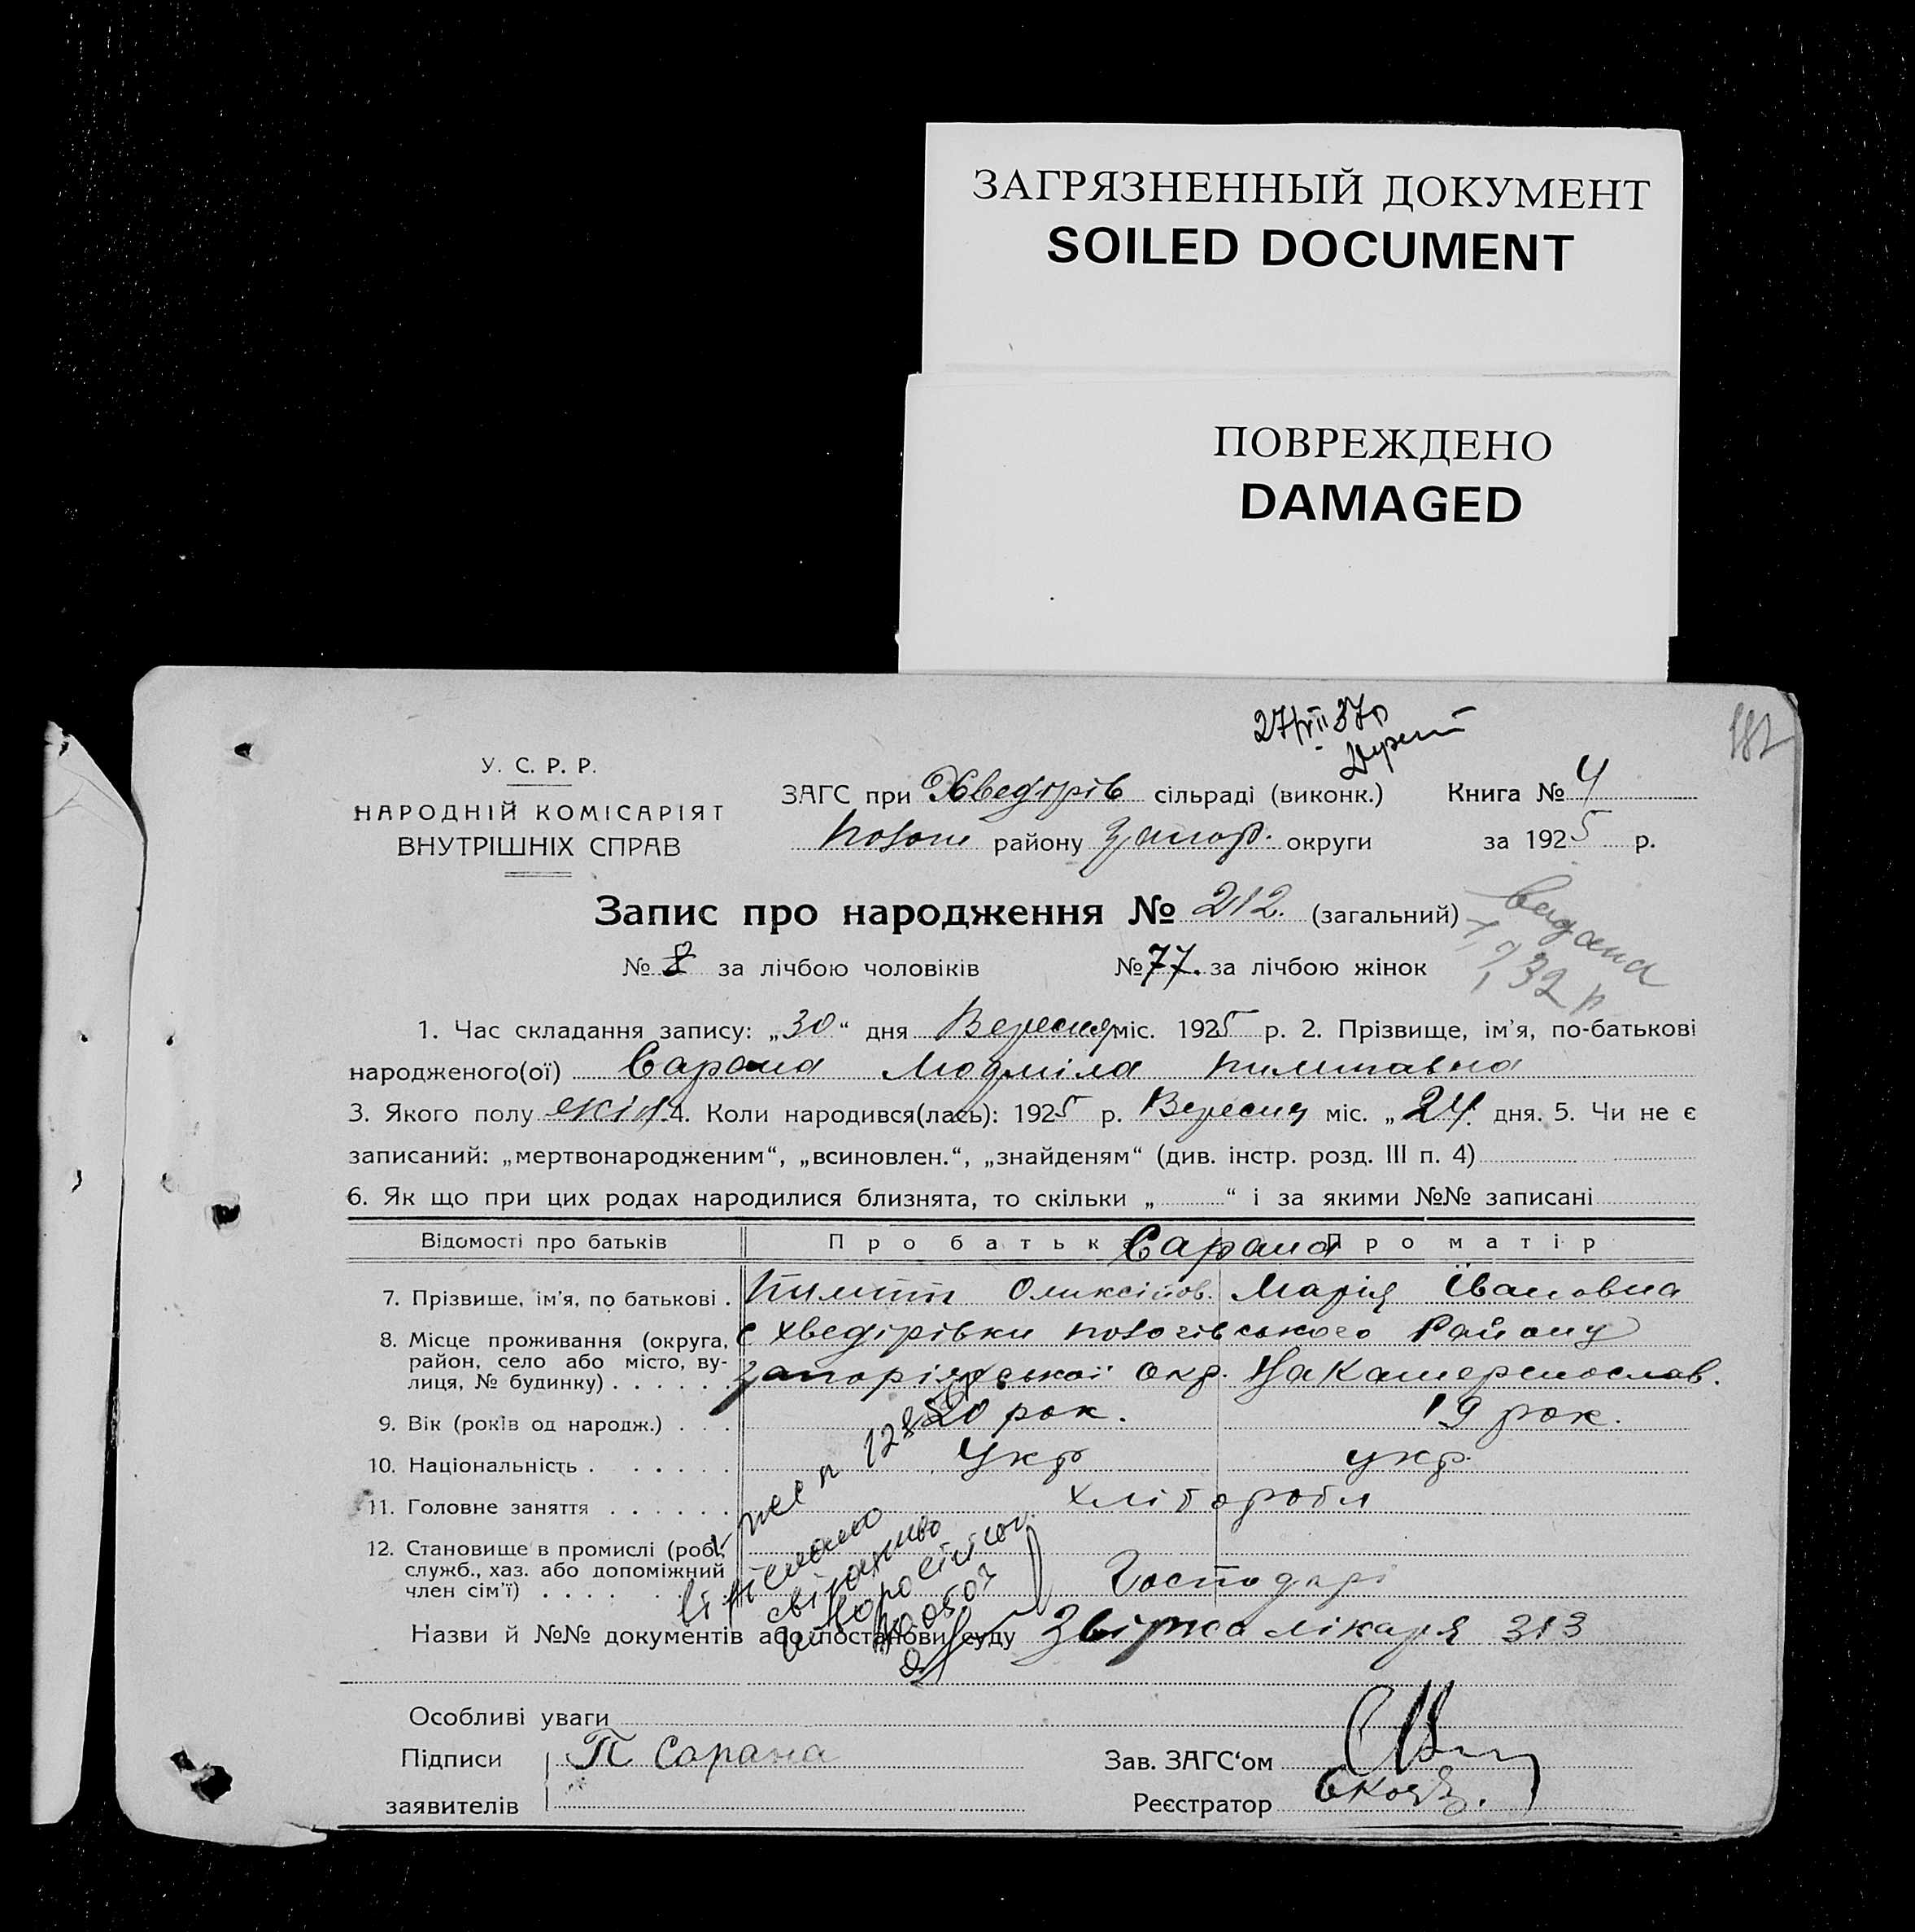 ЗАГРЯЗНЕННЫЙ ДОКУМЕНТ
SOILED DOCUMENT
ПОВРЕЖДЕНО
DAMAGED
182
27/VII 37р
У. С. Р. Р.
НАРОДНІЙ КОМІСАРІЯТ
ВНУТРІШНІХ СПРАВ
ЗАГС при Хведорів сільраді (виконк.) Книга № 4
району Запор. округи за 1925 р.
Запис про народження № 212. (загальний)
видана
№ 8 за лічбою чоловіків № 77. за лічбою жінок
1. Час складання запису: „30“ дня Вересня міс. 1925 р. 2. Прізвище, ім'я, по-батькові
народженого(ої) Сарана Людміла Пилипавна
3. Якого полу жін. 4. Коли народився(лась): 1925 р. Вересня міс. „24. дня. 5. Чи не є
записаний: „мертвонародженим“, „всиновлен.“, „знайденям“ (див. інстр. розд. III п. 4)
6. Як що при цих родах народилися близнята, то скільки „ “ і за якими №№ записані
Відомості про батьків Про батька Про матір
Сарана
7. Прізвище, ім'я, по батькові . Пилип Оликсійов. Марія Івановна
8. Місце проживання (округа, с Хведірівки району
район, село або місто, ву- Запоріжської окр. на Катеренослав.
лиця, № будинку) . . . . . .
9. Вік (років од народж.) . . . 20 рок. 19 рок.
10. Національність . . . . . . Укр укр.
11. Головне заняття . . . . . . хлібороби
12. Становище в промислі (роб.,
служб., хаз. або допоміжний
член сім'ї) . . . . Господарі
Назви й №№ документів або постанови суду Звістка лікаря 313
Особливі уваги
Підписи П Сарана Зав. ЗАГС'ом
заявителів Реєстратор